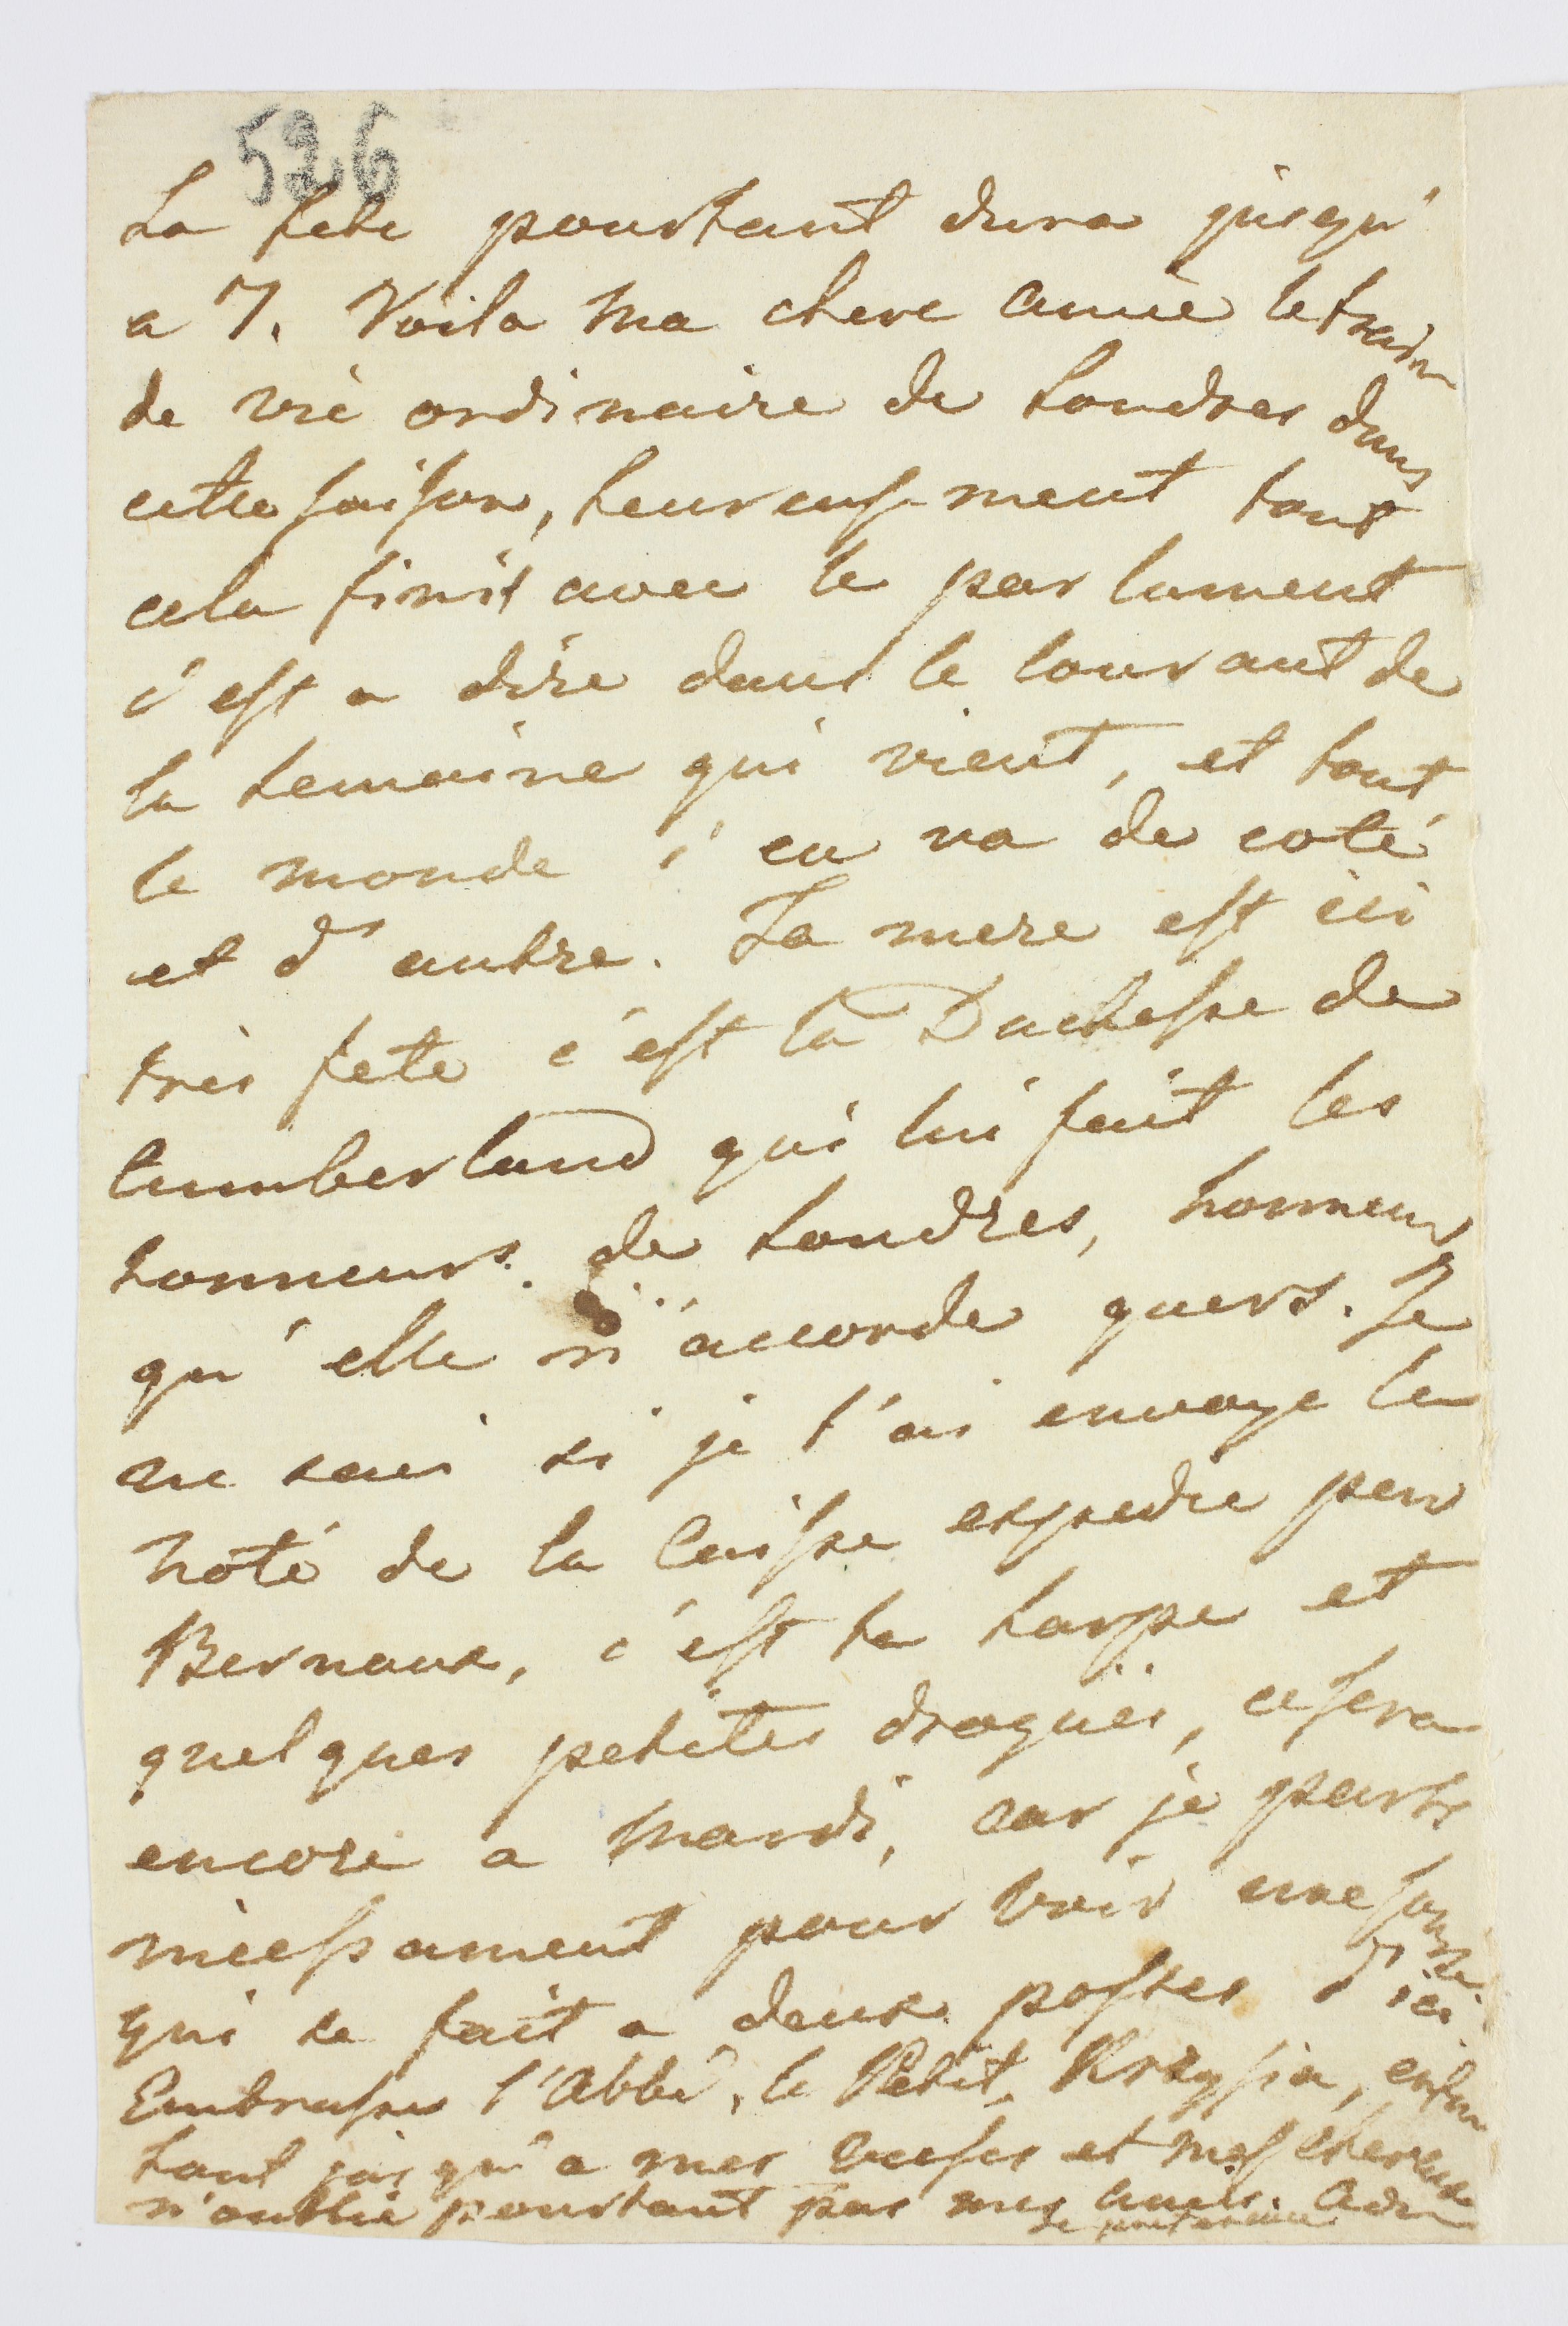 526
La fete pourtant dura jusqu'
a 7. Voila ma chere amie le train
de vie ordinaire de Londres dans
cette saison, heureusement tout
cela finit avec le parlament
c'est a dire dans le courant de
la semaine qui vient, et tout
le monde s'en va de coté
et d'autre. Ta mere est ici
tres fete c'est la Duchesse de
Cumberland qui lui fait les
honneurs de Londres, honneur
qu'elle n'accorde guers. Je
ne sais si je t'ai envoye la
noté de la Caisse expedie par
Bernaux, c'est ta harpe et
quelques petites drogues, ce sera
encore a mardi, car je parts
incessament pour voir une
qui se fait a deux postes d'ici.
Embrasse l'Abbé, le Petit, Krzysia, enfin
tout jusqu'a mes et mes chevaux
n'oublie pourtant pas mes amis. Adieu